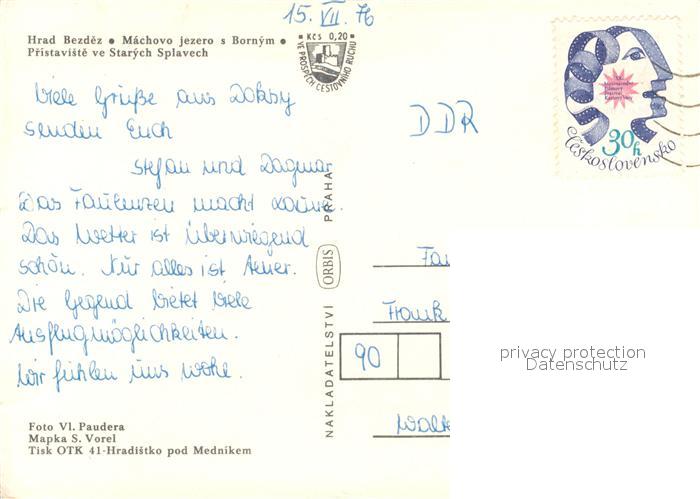 15. VII. 76
Hrad Bezděz • Máchovo jezero s Borným •
Přístaviště ve Starých Splavech
KČS 0,20
VE PROSPĚCH CESTOVNÍHO RUCHU
30h
Československo
Viele Grüße aus Doksy
senden Euch
Stefan und Dagmar
DDR
Das Faulenzen macht Laune.
Das Wetter ist überwiegend
schön. Nur alles ist teuer.
Die Gegend bietet viele
Ausflugmöglichkeiten.
Wir fühlen uns wohl.
NAKLADATELSTVÍ ORBIS PRAHA
Fa
Frank
90
Walt
privacy protection
Datenschutz
Foto Vl. Paudera
Mapka S. Vorel
Tisk OTK 41-Hradištko pod Medníkem